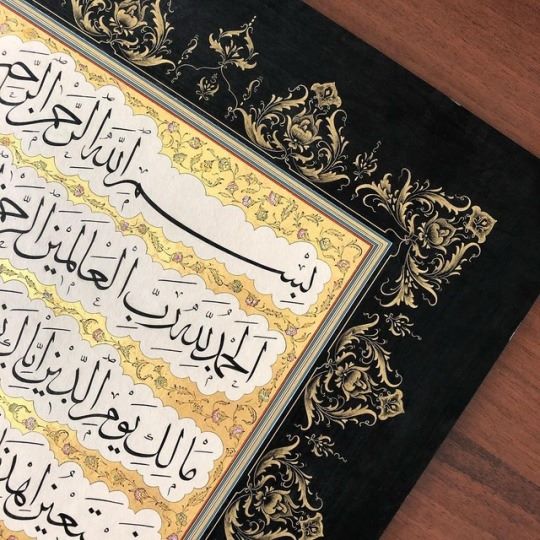 بِسْمِ اللّٰهِ الرَّحْمٰنِ الرَّحِيمِ
اَلْحَمْدُ لِلّٰهِ رَبِّ الْعَالَمِينَ الرَّحْمٰنِ
مَالِكِ يَوْمِ الدِّينِ اِيَّاكَ
نَسْتَعِينُ اِهْدِنَا